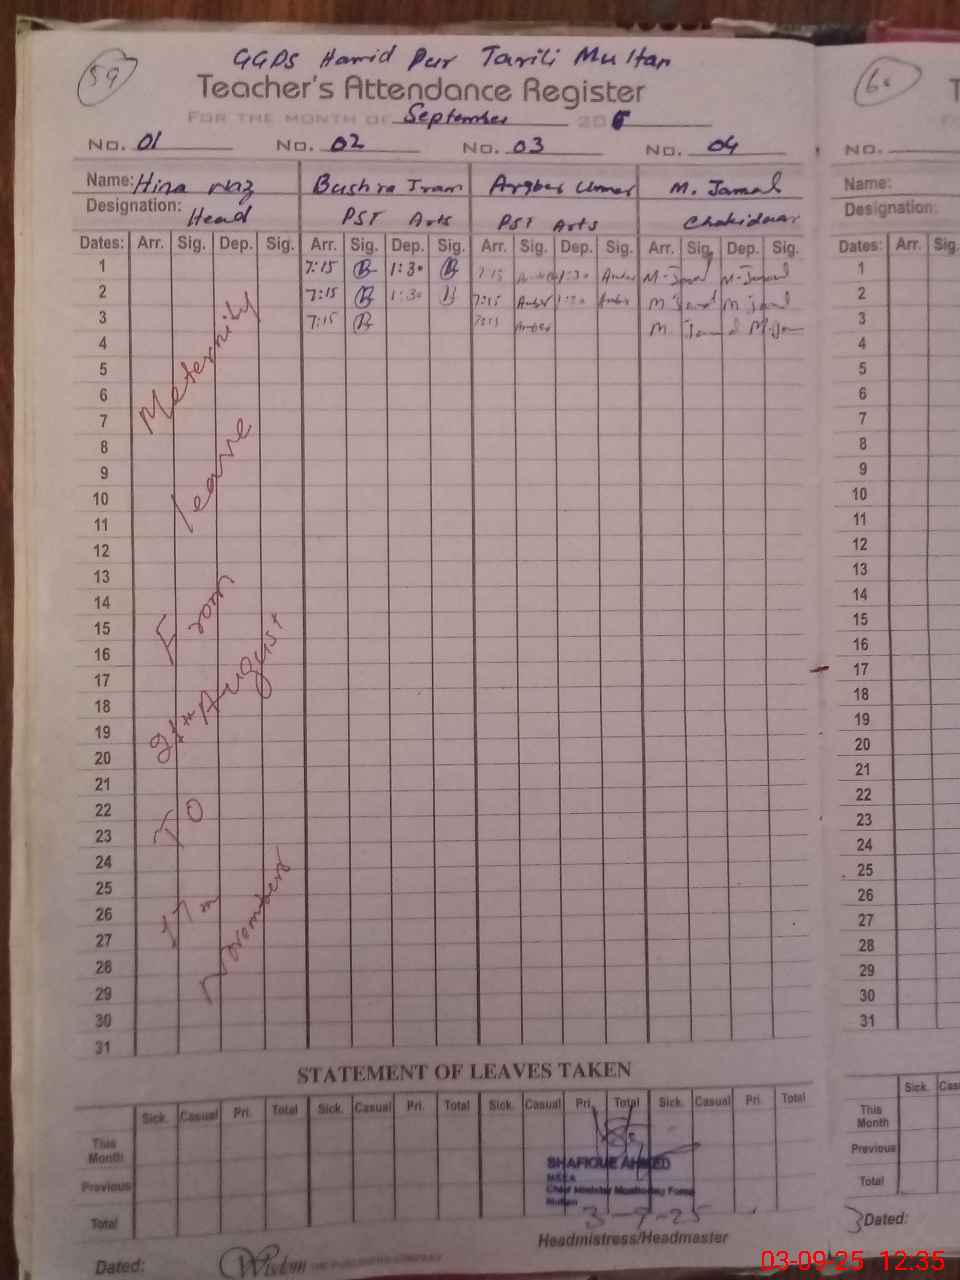 59
GGPS Hamid Pur Tarili Multan
Teacher's Attendance Register
FOR THE MONTH OF September 20
No. 01 No. 02 No. 03 No. 04
Name: Hina Naz Bushra Iram Argber Umer M. Jamal
Designation: Head PST Arts PST Arts Chokidaar
Dates: Arr. Sig. Dep. Sig. Arr. Sig. Dep. Sig. Arr. Sig. Dep. Sig. Arr. Sig. Dep. Sig.
1 7:15 B 1:30 B 7:15 Amber 1:30 Amber M-Jamal M-Jamal
2 7:15 B 1:30 B 7:15 Amber 1:30 Amber M Jamal M Jamal
3 7:15 B 7:15 Amber M. Jamal M.Jam
4
5
6
7
8
9
10
11
12
13
14
15
16
17
18
19
20
21
22
23
24
25
26
27
28
29
30
31
Meternity
leave
From
21th August
To
17th
November
STATEMENT OF LEAVES TAKEN
Sick. Casual Pri. Total Sick. Casual Pri. Total Sick. Casual Pri. Total Sick. Casual Pri. Total
This Month
Previous
Total
SHAFIQUE AHMED
MEEA
Chief Minister Monitoring Force
Multan
3-9-25
Headmistress/Headmaster
Dated:
Wisdom
60
No.
Name:
Designation:
Dates: Arr. Sig.
1
2
3
4
5
6
7
8
9
10
11
12
13
14
15
16
17
18
19
20
21
22
23
24
25
26
27
28
29
30
31
Sick.
This Month
Previous
Total
Dated:
03-09-25 12:35